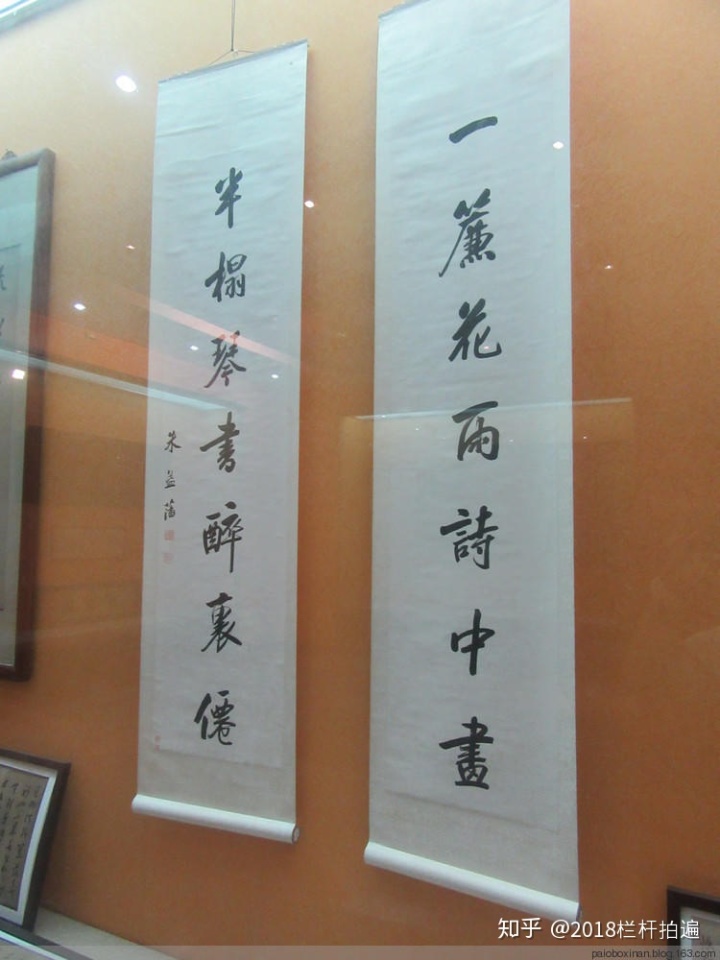 一簾花雨詩中畫
半榻琴書醉裏僊
朱益藩
知乎 @2018栏杆拍遍
paioboxinan.blog.163.com